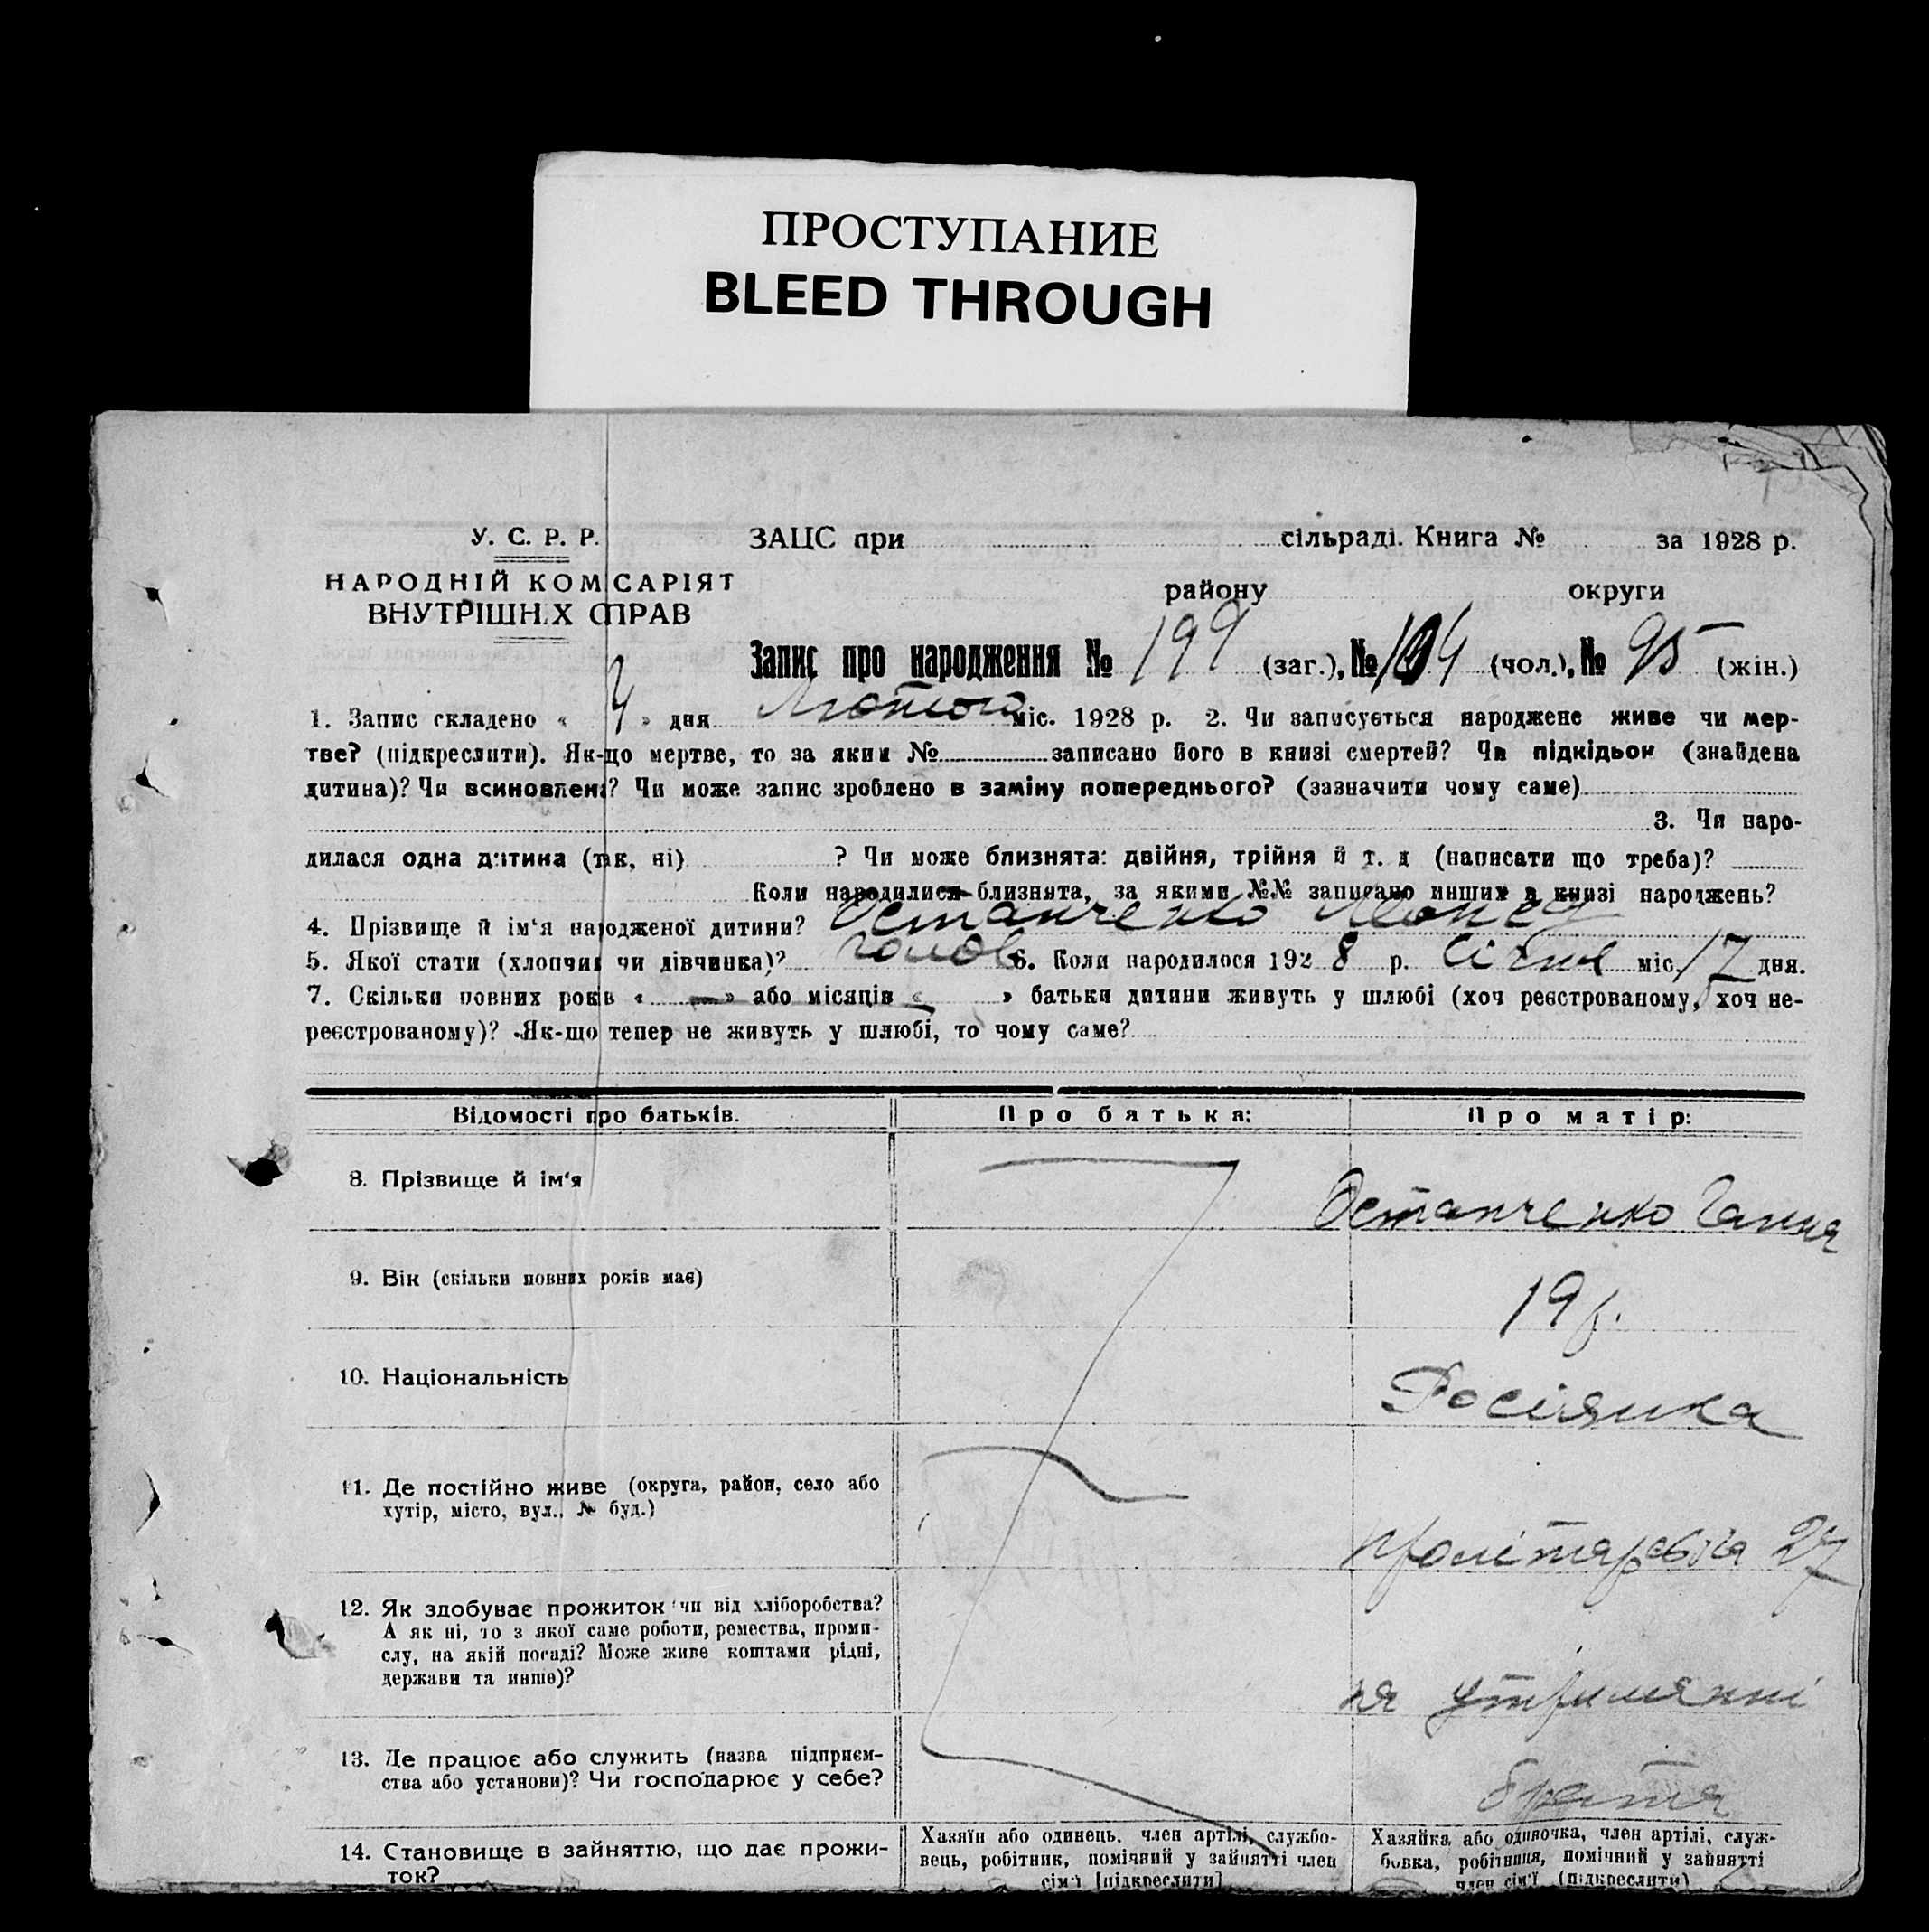 ПРОСТУПАНИЕ
BLEED THROUGH
У. С. Р. Р.
ЗАЦС при сільраді. Книга № за 1928 р.
НАРОДНІЙ КОМІСАРІЯТ
ВНУТРІШНІХ СПРАВ
району округи
Запис про народження № 199 (заг.), № 104 (чол.), № 95 (жін.)
1. Запис складено « 4 » дня Лютого міс. 1928 р. 2. Чи записується народжене живе чи мер-
тве? (підкреслити). Як-що мертве, то за яким № записано його в книзі смертей? Чи підкідьок (знайдена
дитина)? Чи всиновлена? Чи може запис зроблено в заміну попереднього? (зазначити чому саме)
3. Чи наро-
дилася одна дитина (так, ні) ? Чи може близнята: двійня, трійня й т. д (написати що треба)?
Коли народилися близнята, за якими №№ записано инших в книзі народжень?
4. Прізвище й ім‘я народженої дитини? Остапченко Леонед
5. Якої стати (хлопчик чи дівчинка)? чолов 6. Коли народилося 1928 р. Січня міс. 17 дня.
7. Скільки повних років « — » або місяців « — » батьки дитини живуть у шлюбі (хоч реєстрованому, хоч не-
реєстрованому)? Як-що тепер не живуть у шлюбі, то чому саме?
Відомості про батьків. Про батька: Про матір:
8. Прізвище й ім‘я Остапченко Ганна
9. Вік (скільки повних років має) 19 р.
10. Національність Росіянка
11. Де постійно живе (округа, район, село або
хутір, місто, вул., № буд.)
Пролітарська 27
12. Як здобуває прожиток (чи від хліборобства?
А як ні, то з якої саме роботи, ремества, проми-
слу, на якій посаді? Може живе коштами рідні,
держави та инше)?
на утриманні
13. Де працює або служить (назва підприєм-
ства або установи)? Чи господарює у себе?
брата
14. Становище в зайняттю, що дає прожи-
ток?
Хазяїн або одинець, член артілі, службо-
вець, робітник, помічний у зайнятті член
сім‘ї [підкреслити]
Хазяйка або одиночка, член артілі, служ-
бовка, робітниця, помічний у зайнятті
член сім‘ї (підкреслити)